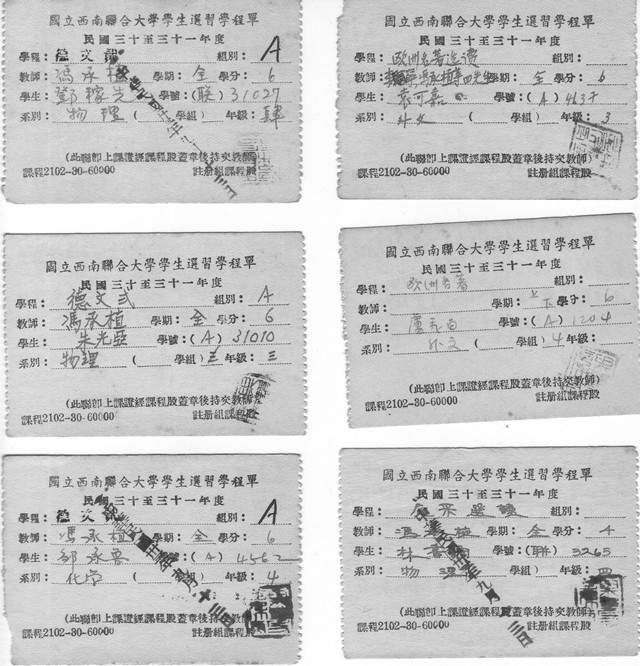 國立西南聯合大學學生選習學程單
民國三十至三十一年度
學程: 德文 組別: A
教師: 馮承植 學期: 全 學分: 6
學生: 鄧稼先 學號: (联) 31027
系別: 物理 ( 學組) 年級: 肆
(此聯卽上課證經課程股蓋章後持交敎師)
課程2102-30-60000 註册組課程股
國立西南聯合大學學生選習學程單
民國三十至三十一年度
學程: 欧洲名著选读 組別:
教師: 馮承植 學期: 全 學分: 6
學生: 袁可嘉 學號: (A)
系別: 外文 ( 學組) 年級: 3
(此聯卽上課證經課程股蓋章後持交敎師)
課程2102-30-60000 註册組課程股
國立西南聯合大學學生選習學程單
民國三十至三十一年度
學程: 德文弍 組別: A
教師: 馮承植 學期: 全 學分: 6
學生: 朱光亞 學號: (A) 31010
系別: 物理 ( 學組) 三 年級: 三
(此聯卽上課證經課程股蓋章後持交敎師)
課程2102-30-60000 註册組課程股
國立西南聯合大學學生選習學程單
民國三十至三十一年度
學程: 欧洲名著 組別:
教師: 學期: 上下 學分: 6
學生: 學號: (A) 1204
系別: 外文 ( 學組) 4 年級:
(此聯卽上課證經課程股蓋章後持交敎師)
課程2102-30-60000 註册組課程股
國立西南聯合大學學生選習學程單
民國三十至三十一年度
學程: 德文 組別: A
教師: 馮承植 學期: 全 學分: 6
學生: 鄒承魯 學號: (A) 4562
系別: 化学 ( 學組) 年級: 4
(此聯卽上課證經課程股蓋章後持交敎師)
課程2102-30-60000 註册組課程股
國立西南聯合大學學生選習學程單
民國三十至三十一年度
學程: 組別:
教師: 馮承植 學期: 全 學分: 4
學生: 林 學號: (聯) 3265
系別: 物理 ( 學組) 年級: 四
(此聯卽上課證經課程股蓋章後持交敎師)
課程2102-30-60000 註册組課程股